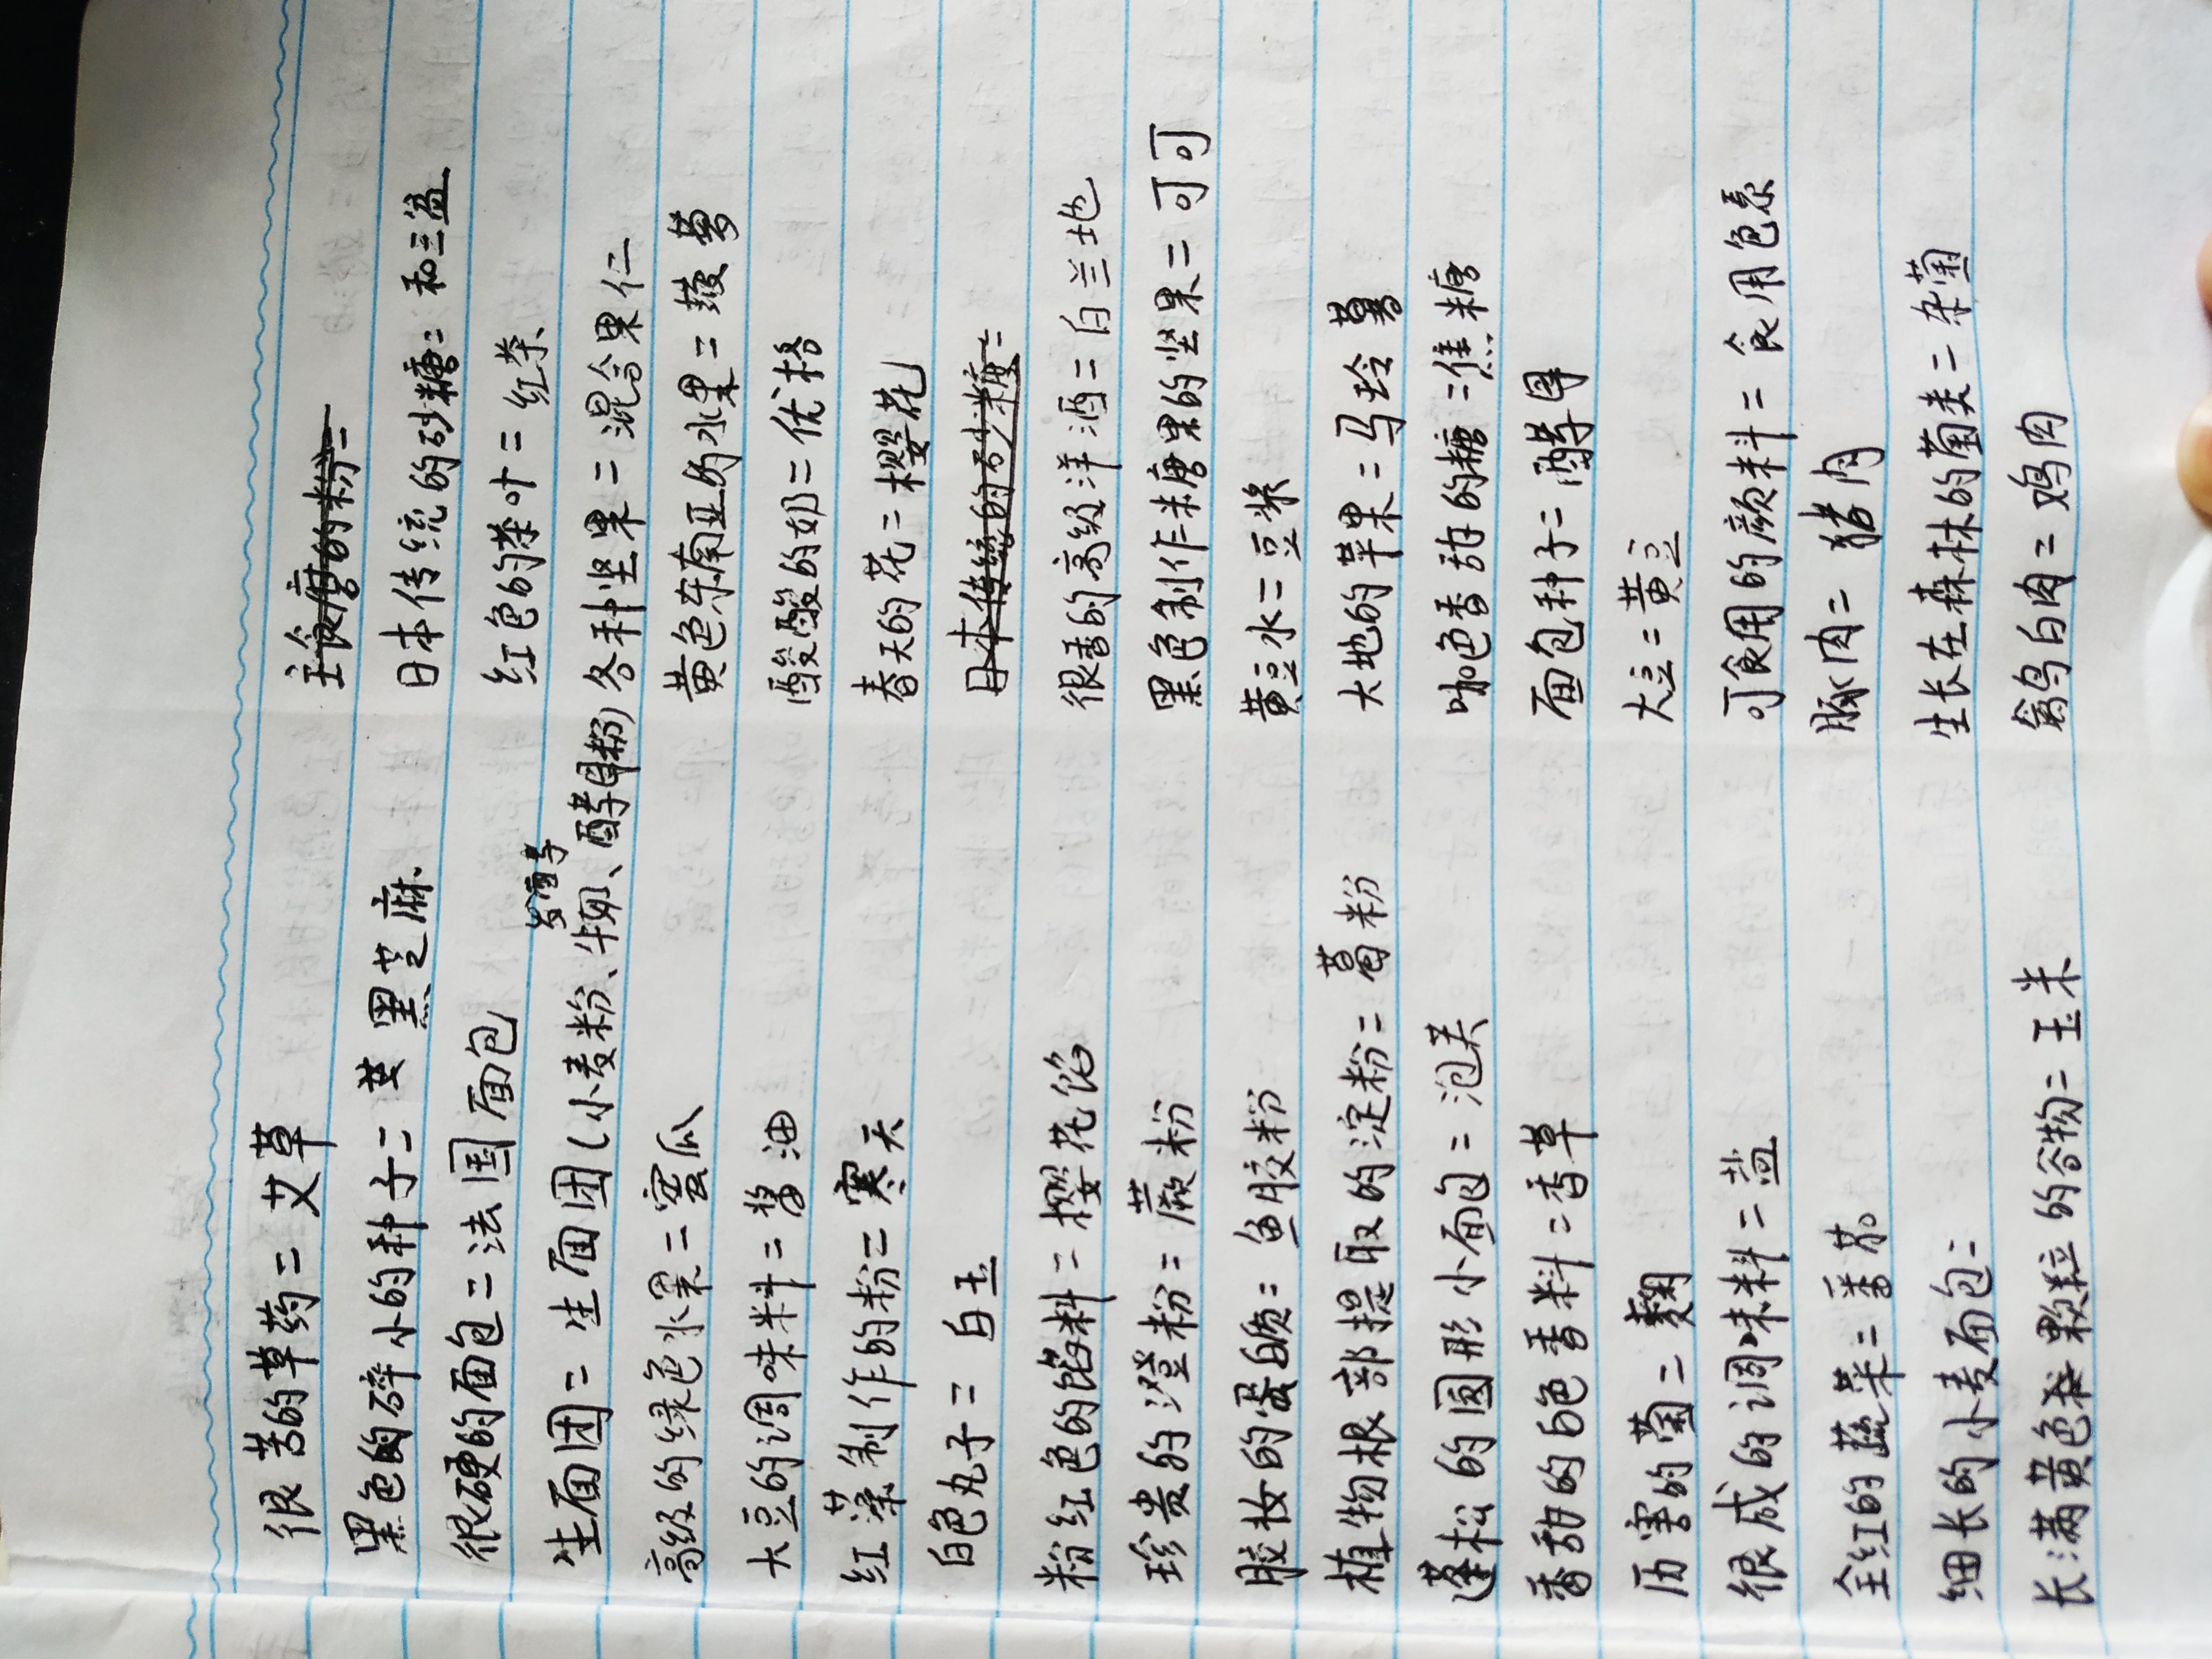 很苦的草药=艾草
黑色的碎小的种子= 黑芝麻
很硬的面包=法国面包
谷酵
生面团=生面团(小麦粉、牛奶、酵母粉)
高级的绿色水果=蜜瓜
大豆的调味料=酱油
红藻制作的粉=寒天
白色丸子=白玉
粉红色的馅料=樱花馅
珍贵的澄粉=蕨粉
胶状的蛋白质=鱼胶粉
植物根部提取的淀粉=葛粉
蓬松的圆形小面包=泡芙
香甜的白色香料=香草
历害的菌=麹
很咸的调味料=盐
全红的蔬菜=番茄
细长的小麦面包=
长满黄色颗粒的谷物=玉米
主食磨的粉=
日本传统的砂糖=和三盆
红色的茶叶=红茶
各种坚果=混合果仁
黄色东南亚的水果=菠萝
酸酸的奶=优格
春天的花=樱花
日本传统的砂糖=
很香的高级洋酒=白兰地
黑色制作糖果的坚果=可可
黄豆水=豆浆
大地的苹果=马玲薯
咖色香甜的糖=焦糖
面包种子=酵母
大豆=黄豆
可食用的颜料=食用色素
豚肉=猪肉
生长在森林的菌类=杂菌
禽鸟白肉=鸡肉